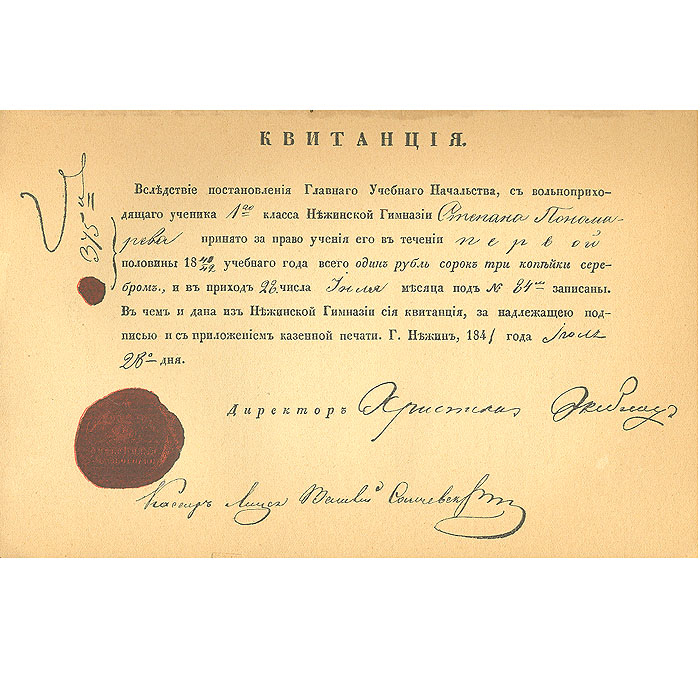 КВИТАНЦІЯ.
Вслѣдствіе постановленія Главнаго Учебнаго Начальства, съ вольноприхо-
дящаго ученика 1го класса Нѣжинской Гимназіи Степана Понома-
рева принято за право ученія его въ теченіи первой
половины 18 учебнаго года всего одинъ рубль сорок три копѣйки сере-
бромъ, и въ приходъ 28 числа Іюля мѣсяца подъ № 84 записаны.
Въ чемъ и дана изъ Нѣжинской Гимназіи сія квитанція, за надлежащею под-
писью и съ приложеніемъ казенной печати. Г. Нѣжинъ, 1841 года Іюля
28 дня.
375
Директоръ Христиан Экеблад